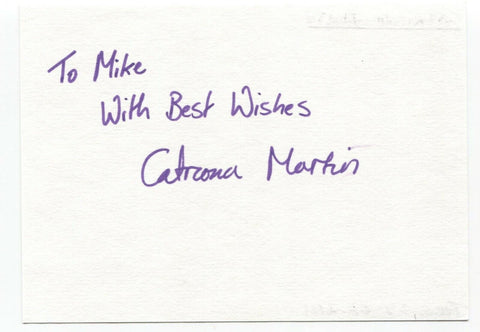 To Mike
With Best Wishes
Catriona Martin